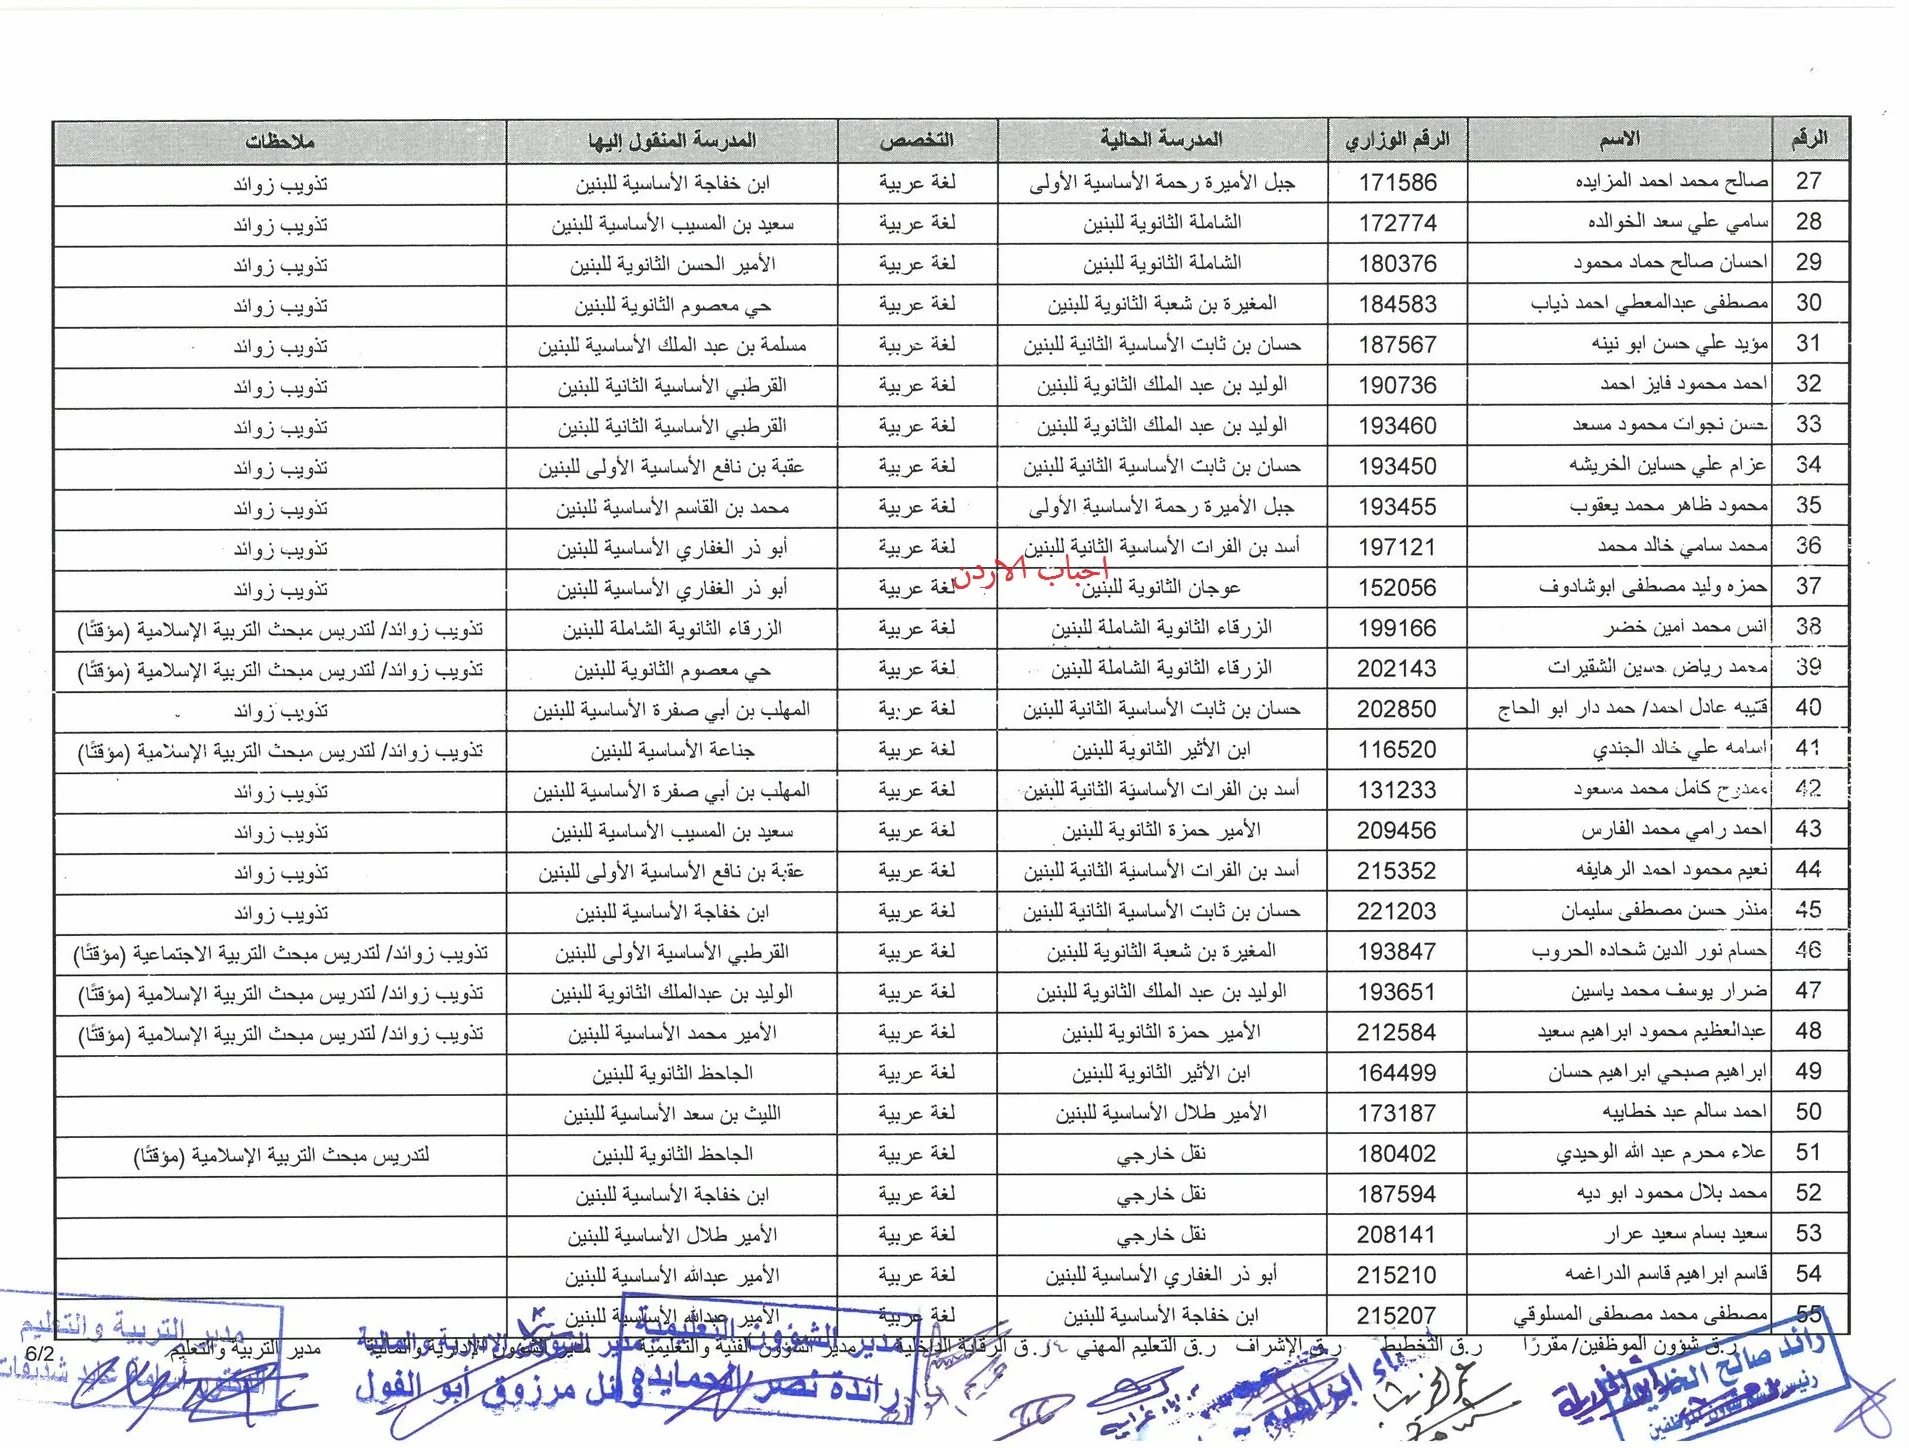 الرقم الاسم الرقم الوزاري المدرسة الحالية التخصص المدرسة المنقول إليها ملاحظات
27 صالح محمد احمد المزايده 171586 جبل الأميرة رحمة الأساسية الأولى لغة عربية ابن خفاجة الأساسية للبنين تذويب زوائد
28 سامي علي سعد الخوالده 172774 الشاملة الثانوية للبنين لغة عربية سعيد بن المسيب الأساسية للبنين تذويب زوائد
29 احسان صالح حماد محمود 180376 الشاملة الثانوية للبنين لغة عربية الأمير الحسن الثانوية للبنين تذويب زوائد
30 مصطفى عبدالمعطي احمد ذياب 184583 المغيرة بن شعبة الثانوية للبنين لغة عربية حي معصوم الثانوية للبنين تذويب زوائد
31 مؤيد علي حسن ابو نينه 187567 حسان بن ثابت الأساسية الثانية للبنين لغة عربية مسلمة بن عبد الملك الأساسية للبنين تذويب زوائد
32 احمد محمود فايز احمد 190736 الوليد بن عبد الملك الثانوية للبنين لغة عربية القرطبي الأساسية الثانية للبنين تذويب زوائد
33 حسن نجوات محمود مسعد 193460 الوليد بن عبد الملك الثانوية للبنين لغة عربية القرطبي الأساسية الثانية للبنين تذويب زوائد
34 عزام علي حساين الخريشه 193450 حسان بن ثابت الأساسية الثانية للبنين لغة عربية عقبة بن نافع الأساسية الأولى للبنين تذويب زوائد
35 محمود ظاهر محمد يعقوب 193455 جبل الأميرة رحمة الأساسية الأولى لغة عربية محمد بن القاسم الأساسية للبنين تذويب زوائد
36 محمد سامي خالد محمد 197121 أسد بن الفرات الأساسية الثانية للبنين لغة عربية أبو ذر الغفاري الأساسية للبنين تذويب زوائد
احباب الاردن
37 حمزه وليد مصطفى ابوشادوف 152056 عوجان الثانوية للبنين لغة عربية أبو ذر الغفاري الأساسية للبنين تذويب زوائد
38 انس محمد امين خضر 199166 الزرقاء الثانوية الشاملة للبنين لغة عربية الزرقاء الثانوية الشاملة للبنين تذويب زوائد/ لتدريس مبحث التربية الإسلامية (مؤقتًا)
39 محمد رياض حسين الشقيرات 202143 الزرقاء الثانوية الشاملة للبنين لغة عربية حي معصوم الثانوية للبنين تذويب زوائد/ لتدريس مبحث التربية الإسلامية (مؤقتًا)
40 قتيبه عادل احمد/ حمد دار ابو الحاج 202850 حسان بن ثابت الأساسية الثانية للبنين لغة عربية المهلب بن أبي صفرة الأساسية للبنين تذويب زوائد
41 اسامه علي خالد الجندي 116520 ابن الأثير الثانوية للبنين لغة عربية جناعة الأساسية للبنين تذويب زوائد/ لتدريس مبحث التربية الإسلامية (مؤقتًا)
42 ممدوح كامل محمد مسعود 131233 أسد بن الفرات الأساسية الثانية للبنين لغة عربية المهلب بن أبي صفرة الأساسية للبنين تذويب زوائد
43 احمد رامي محمد الفارس 209456 الأمير حمزة الثانوية للبنين لغة عربية سعيد بن المسيب الأساسية للبنين تذويب زوائد
44 نعيم محمود احمد الرهايفه 215352 أسد بن الفرات الأساسية الثانية للبنين لغة عربية عقبة بن نافع الأساسية الأولى للبنين تذويب زوائد
45 منذر حسن مصطفى سليمان 221203 حسان بن ثابت الأساسية الثانية للبنين لغة عربية ابن خفاجة الأساسية للبنين تذويب زوائد
46 حسام نور الدين شحاده الحروب 193847 المغيرة بن شعبة الثانوية للبنين لغة عربية القرطبي الأساسية الأولى للبنين تذويب زوائد/ لتدريس مبحث التربية الاجتماعية (مؤقتًا)
47 ضرار يوسف محمد ياسين 193651 الوليد بن عبد الملك الثانوية للبنين لغة عربية الوليد بن عبدالملك الثانوية للبنين تذويب زوائد/ لتدريس مبحث التربية الإسلامية (مؤقتًا)
48 عبدالعظيم محمود ابراهيم سعيد 212584 الأمير حمزة الثانوية للبنين لغة عربية الأمير محمد الأساسية للبنين تذويب زوائد/ لتدريس مبحث التربية الإسلامية (مؤقتًا)
49 ابراهيم صبحي ابراهيم حسان 164499 ابن الأثير الثانوية للبنين لغة عربية الجاحظ الثانوية للبنين
50 احمد سالم عبد خطايبه 173187 الأمير طلال الأساسية للبنين لغة عربية الليث بن سعد الأساسية للبنين
51 علاء محرم عبد الله الوحيدي 180402 نقل خارجي لغة عربية الجاحظ الثانوية للبنين لتدريس مبحث التربية الإسلامية (مؤقتًا)
52 محمد بلال محمود ابو ديه 187594 نقل خارجي لغة عربية ابن خفاجة الأساسية للبنين
53 سعيد بسام سعيد عرار 208141 نقل خارجي لغة عربية الأمير طلال الأساسية للبنين
54 قاسم ابراهيم قاسم الدراغمه 215210 أبو ذر الغفاري الأساسية للبنين لغة عربية الأمير عبدالله الأساسية للبنين
55 مصطفى محمد مصطفى المسلوقي 215207 ابن خفاجة الأساسية للبنين لغة عربية الأمير عبدالله الأساسية للبنين
ر.ق شؤون الموظفين/ مقررًا ر.ق التخطيط ر.ق الإشراف ر.ق التعليم المهني ر.ق الرقابة الداخلية مدير الشؤون الفنية والتعليمية مدير الشؤون الإدارية والمالية مدير التربية والتعليم 6/2
رائد صالح
مدير الشؤون التعليمية
رائدة نصر الحمايده
مدير الشؤون الإدارية والمالية
وائل مرزوق أبو الفول
مدير التربية والتعليم